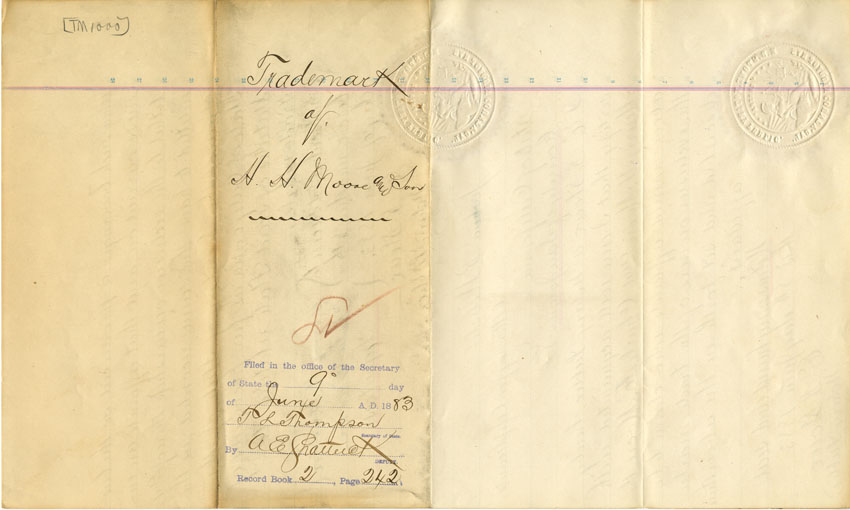 [TM1000]
Trademark
of
H. H. Moore and Son
Filed in the office of the Secretary
of State the 9" day
of June A. D. 1883
T L Thompson
Secretary of State.
By A E Shattuck
Deputy.
Record Book 2, Page 242.